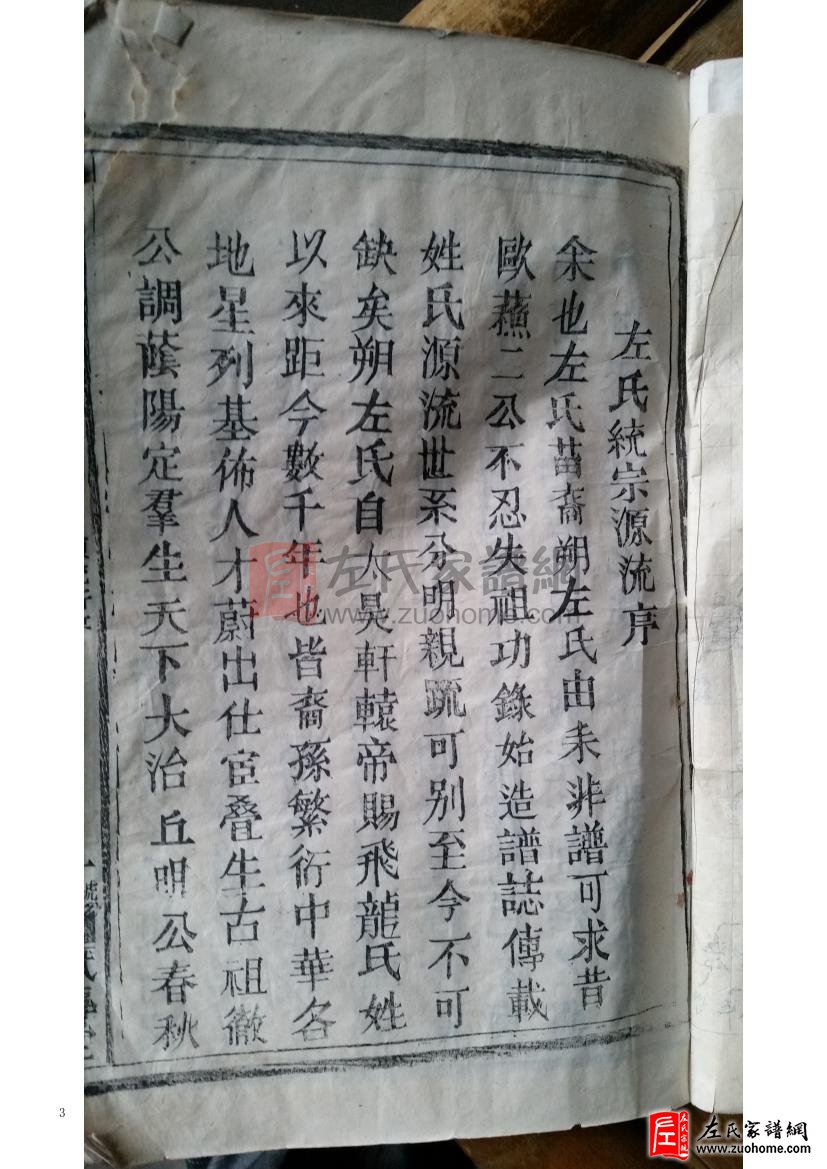 左氏統宗源流序
余也左氏苗裔朔左氏由来非譜可求昔
歐蘓二公不忍失祖功錄始造譜誌傳載
姓氏源流世系分明親疏可别至今不可
缺矣朔左氏自太昊軒轅帝賜飛龍氏姓
以來距今數千年也皆裔孫繁衍中華各
地星列基佈人才蔚出仕宦叠生古祖徹
公調蔭陽定羣生天下大治丘明公春秋
左氏家譜網
www.zuohome.com
3
左氏家譜網
www.zuohome.com